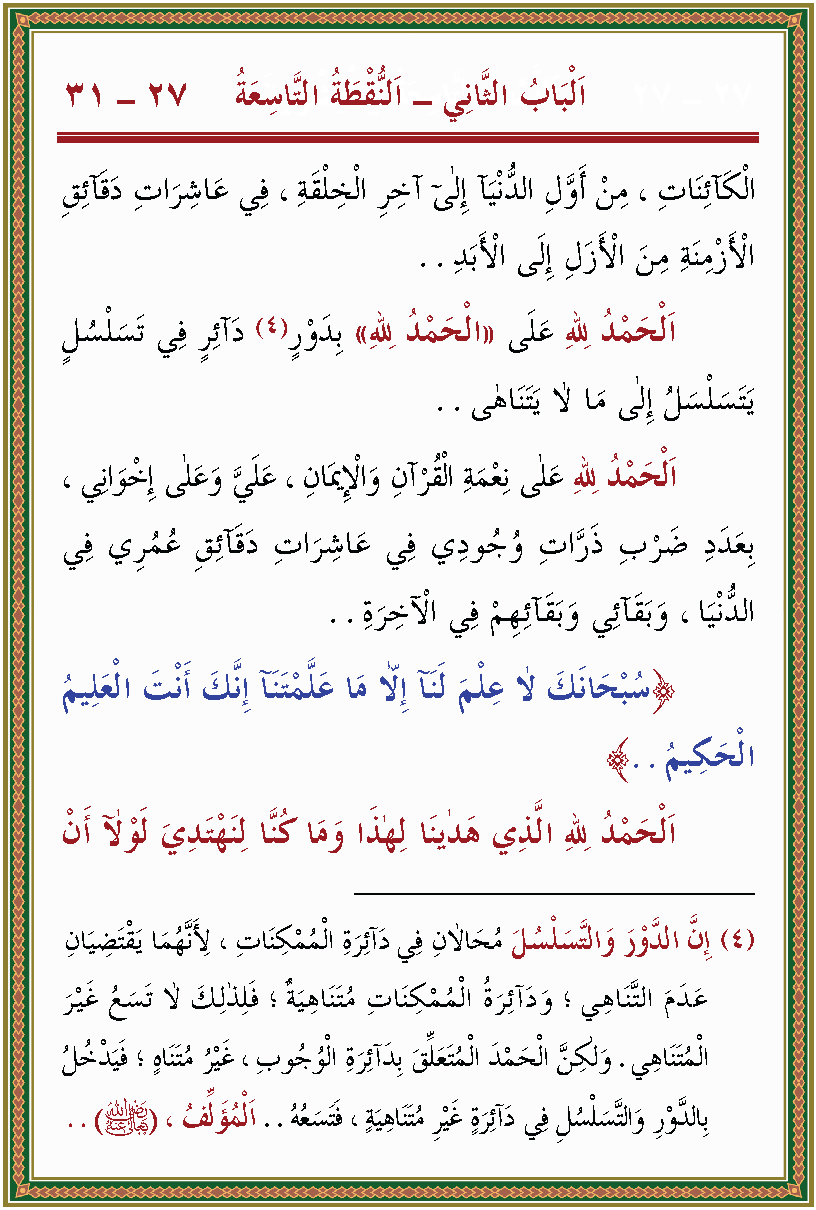 اَلْبَابُ الثَّانِي ــ اَلنُّقْطَةُ التَّاسِعَةُ ٢٧ ــ ٣١
الْكَآئِنَاتِ ، مِنْ أَوَّلِ الدُّنْيَآ إِلٰىٓ آخِرِ الْخِلْقَةِ ، فِي عَاشِرَاتِ دَقَآئِقِ
الْأَزْمِنَةِ مِنَ الْأَزَلِ إِلَى الْأَبَدِ . .
اَلْحَمْدُ لِلهِ عَلَى «الْحَمْدُ لِلهِ» بِدَوْرٍ(٤) دَآئِرٍ فِي تَسَلْسُلٍ
يَتَسَلْسَلُ إِلٰى مَا لٰا يَتَنَاهٰى . .
اَلْحَمْدُ لِلهِ عَلٰى نِعْمَةِ الْقُرْآنِ وَالْإِيمَانِ ، عَلَيَّ وَعَلٰى إِخْوَانِي ،
بِعَدَدِ ضَرْبِ ذَرَّاتِ وُجُودِي فِي عَاشِرَاتِ دَقَآئِقِ عُمُرِي فِي
الدُّنْيَا ، وَبَقَآئِي وَبَقَآئِهِمْ فِي الْآخِرَةِ . .
﴿سُبْحَانَكَ لٰا عِلْمَ لَنَآ إِلّٰا مَا عَلَّمْتَنَآ إِنَّكَ أَنْتَ الْعَلِيمُ
الْحَكِيمُ . .﴾
اَلْحَمْدُ لِلهِ الَّذِي هَدٰينَا لِهٰذَا وَمَا كُنَّا لِنَهْتَدِيَ لَوْلٰآ أَنْ
(٤) إِنَّ الدَّوْرَ وَالتَّسَلْسُلَ مُحَالٰانِ فِي دَآئِرَةِ الْمُمْكِنَاتِ ، لِأَنَّهُمَا يَقْتَضِيَانِ
عَدَمَ التَّنَاهِي ؛ وَدَآئِرَةُ الْمُمْكِنَاتِ مُتَنَاهِيَةٌ ؛ فَلِذٰلِكَ لٰا تَسَعُ غَيْرَ
الْمُتَنَاهِي . وَلٰكِنَّ الْحَمْدَ الْمُتَعَلِّقَ بِدَآئِرَةِ الْوُجُوبِ ، غَيْرُ مُتَنَاهٍ ؛ فَيَدْخُلُ
بِالدَّوْرِ وَالتَّسَلْسُلِ فِي دَآئِرَةٍ غَيْرِ مُتَنَاهِيَةٍ ، فَتَسَعُهُ . . اَلْمُؤَلِّفُ ، (رضي الله تعالى عنه) . .